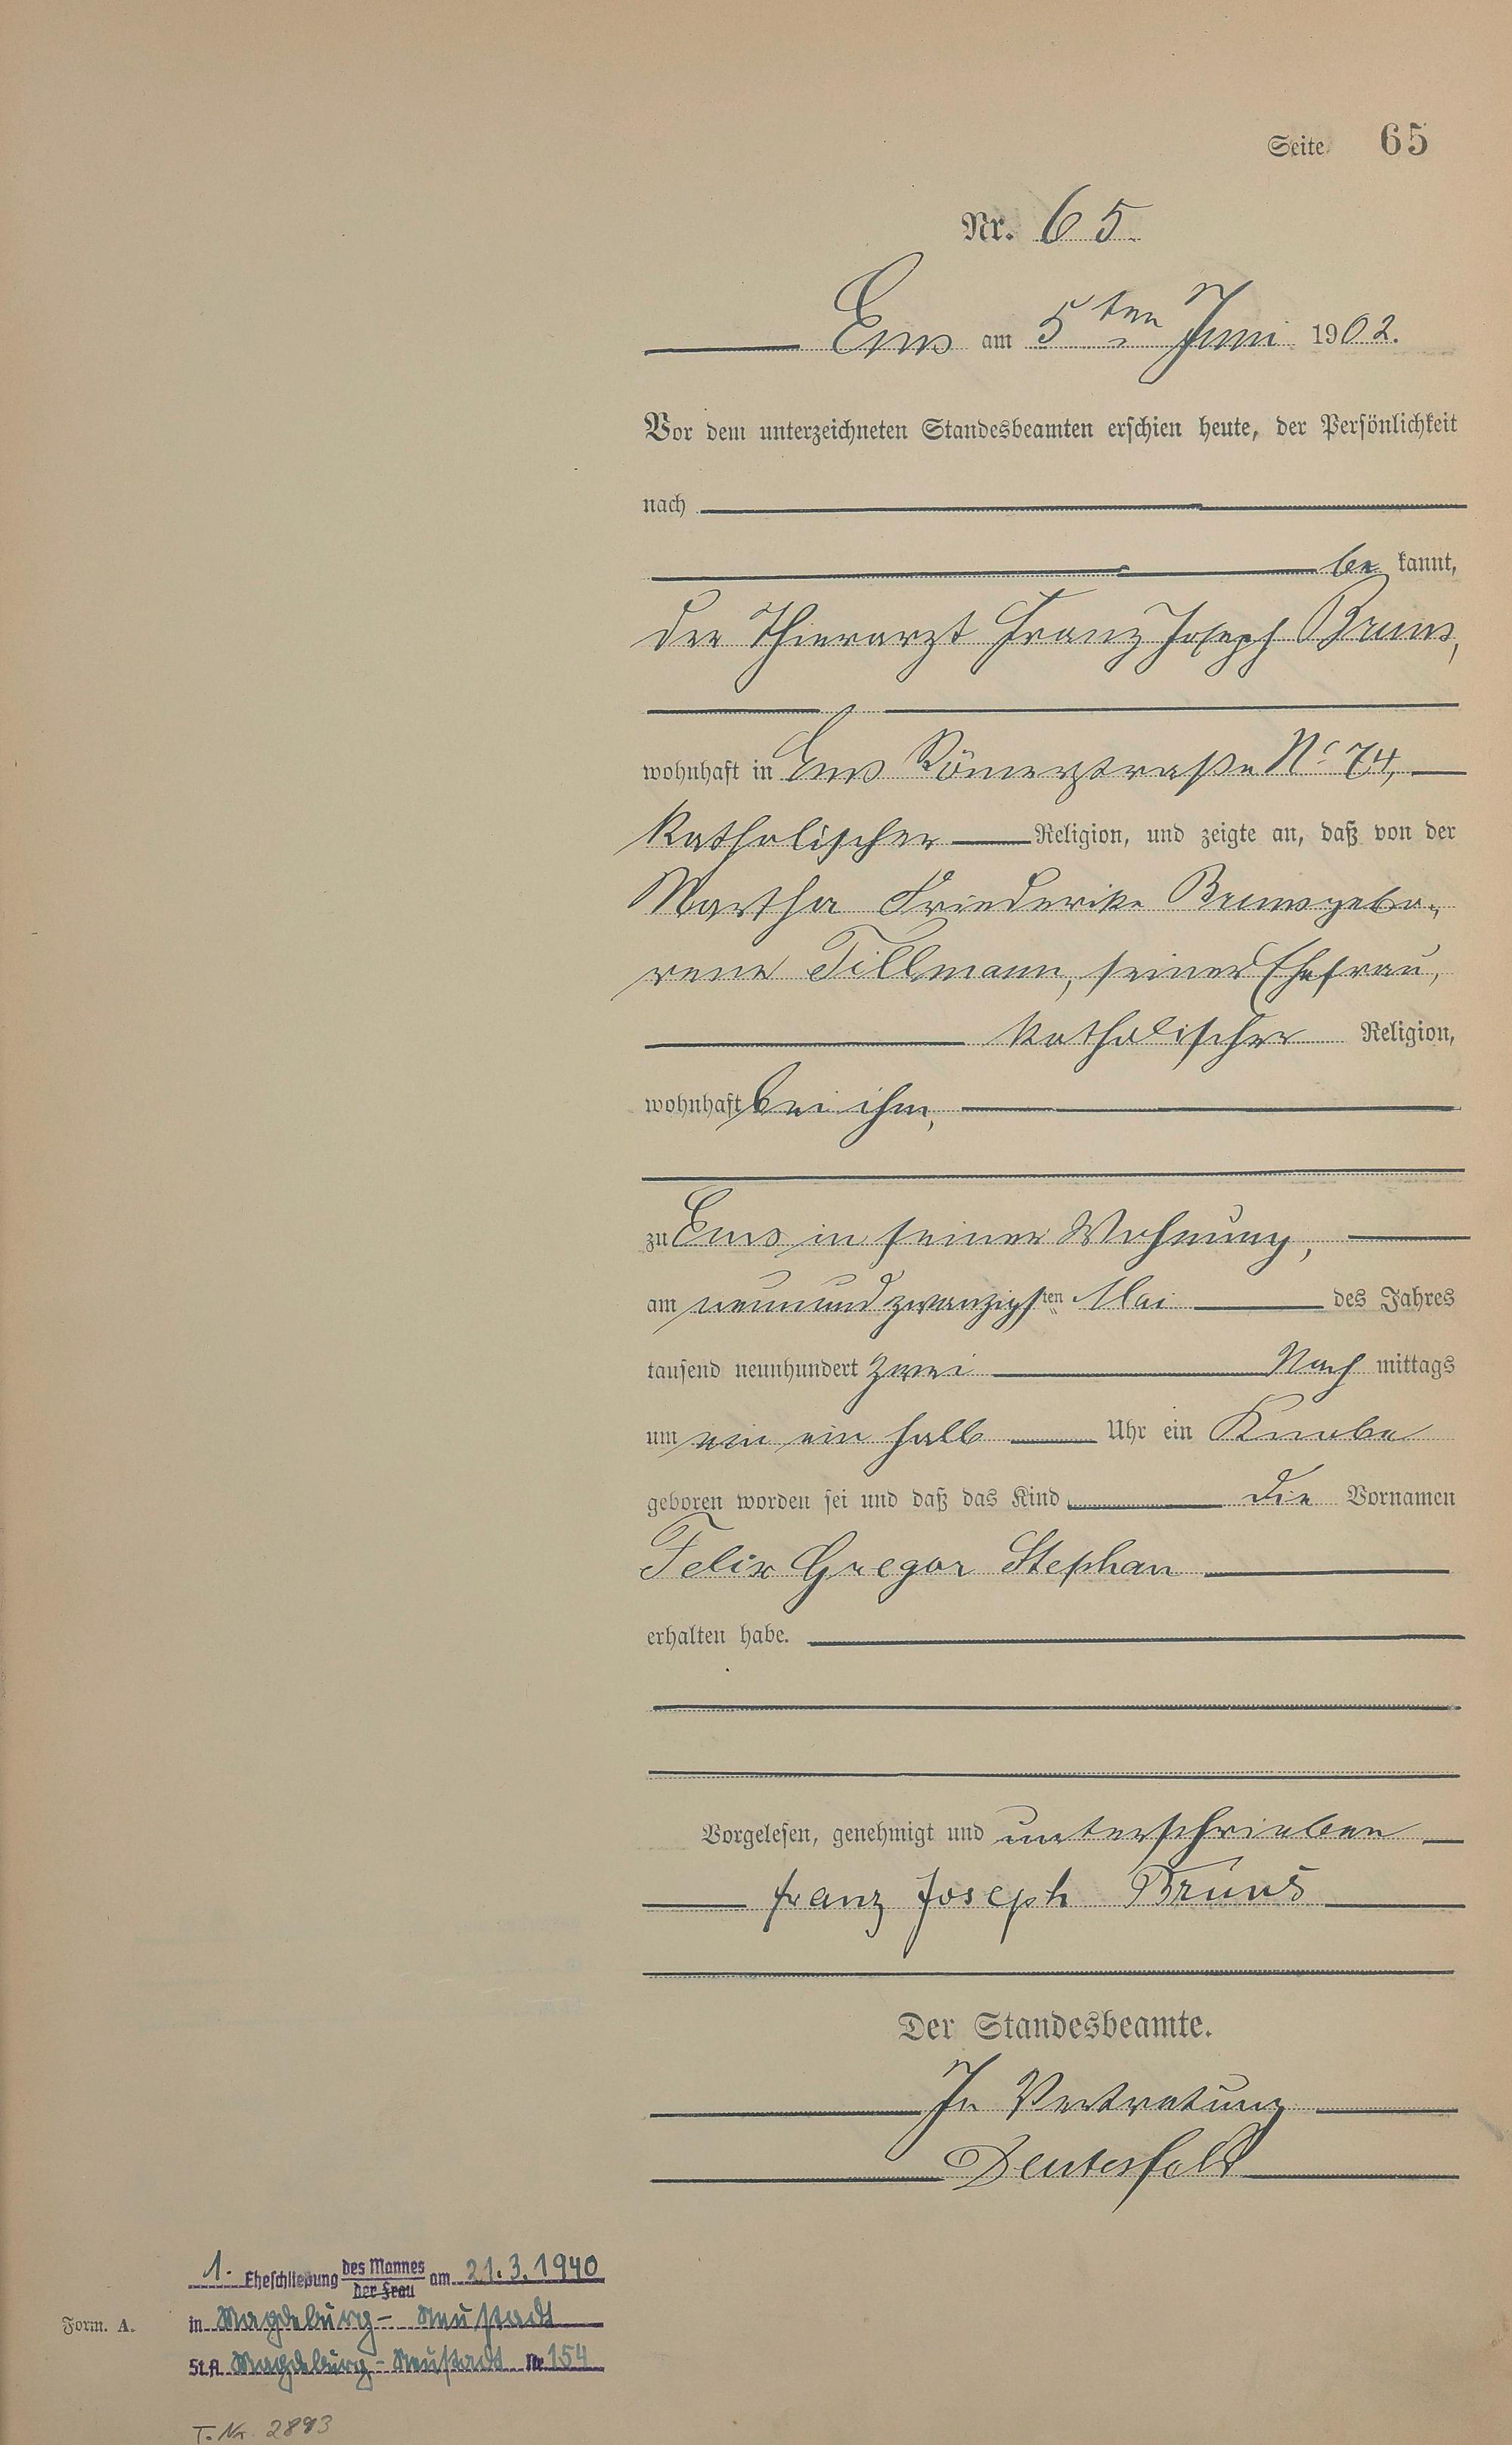 Seite 65
Nr. 65.
Ems am 5ten Juni 1902.
Vor dem unterzeichneten Standesbeamten erschien heute, der Persönlichkeit
nach
be kannt,
der Thierarzt Franz Joseph Bruns,
wohnhaft in Ems Römerstraße No 74,
katholischer Religion, und zeigte an, daß von der
Martha Friederike Bruns gebo-
rene Tillmann, seiner Ehefrau,
katholischer Religion,
wohnhaft bei ihm,
zu Ems in seiner Wohnung,
am neunundzwanzigsten Mai des Jahres
tausend neunhundert zwei Nach mittags
um ein ein halb Uhr ein Knabe
geboren worden sei und daß das Kind die Vornamen
Felix Gregor Stephan
erhalten habe.
Vorgelesen, genehmigt und unterschrieben
Franz Joseph Bruns
Der Standesbeamte.
In Vertretung
1. Eheschließung des Mannes am 21.3.1940
der Frau
Form. A.
in Magdeburg-Neustadt
St.A. Magdeburg-Neustadt Nr 154
T. Nr. 2893